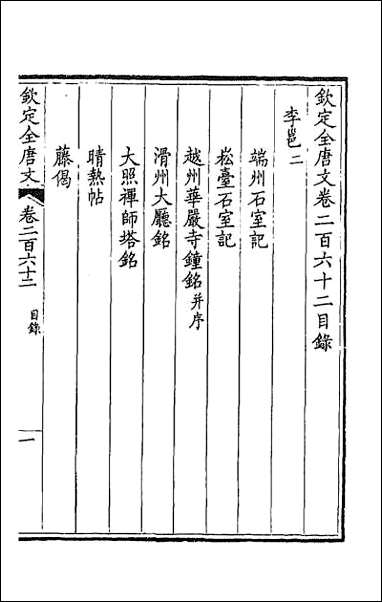 欽定全唐文卷二百六十二目錄
李邕二
端州石室記
崧臺石室記
越州華嚴寺鐘銘并序
滑州大廳銘
大照禪師塔銘
晴熱帖
藤偈
欽定全唐文 卷二百六十二 目錄 一